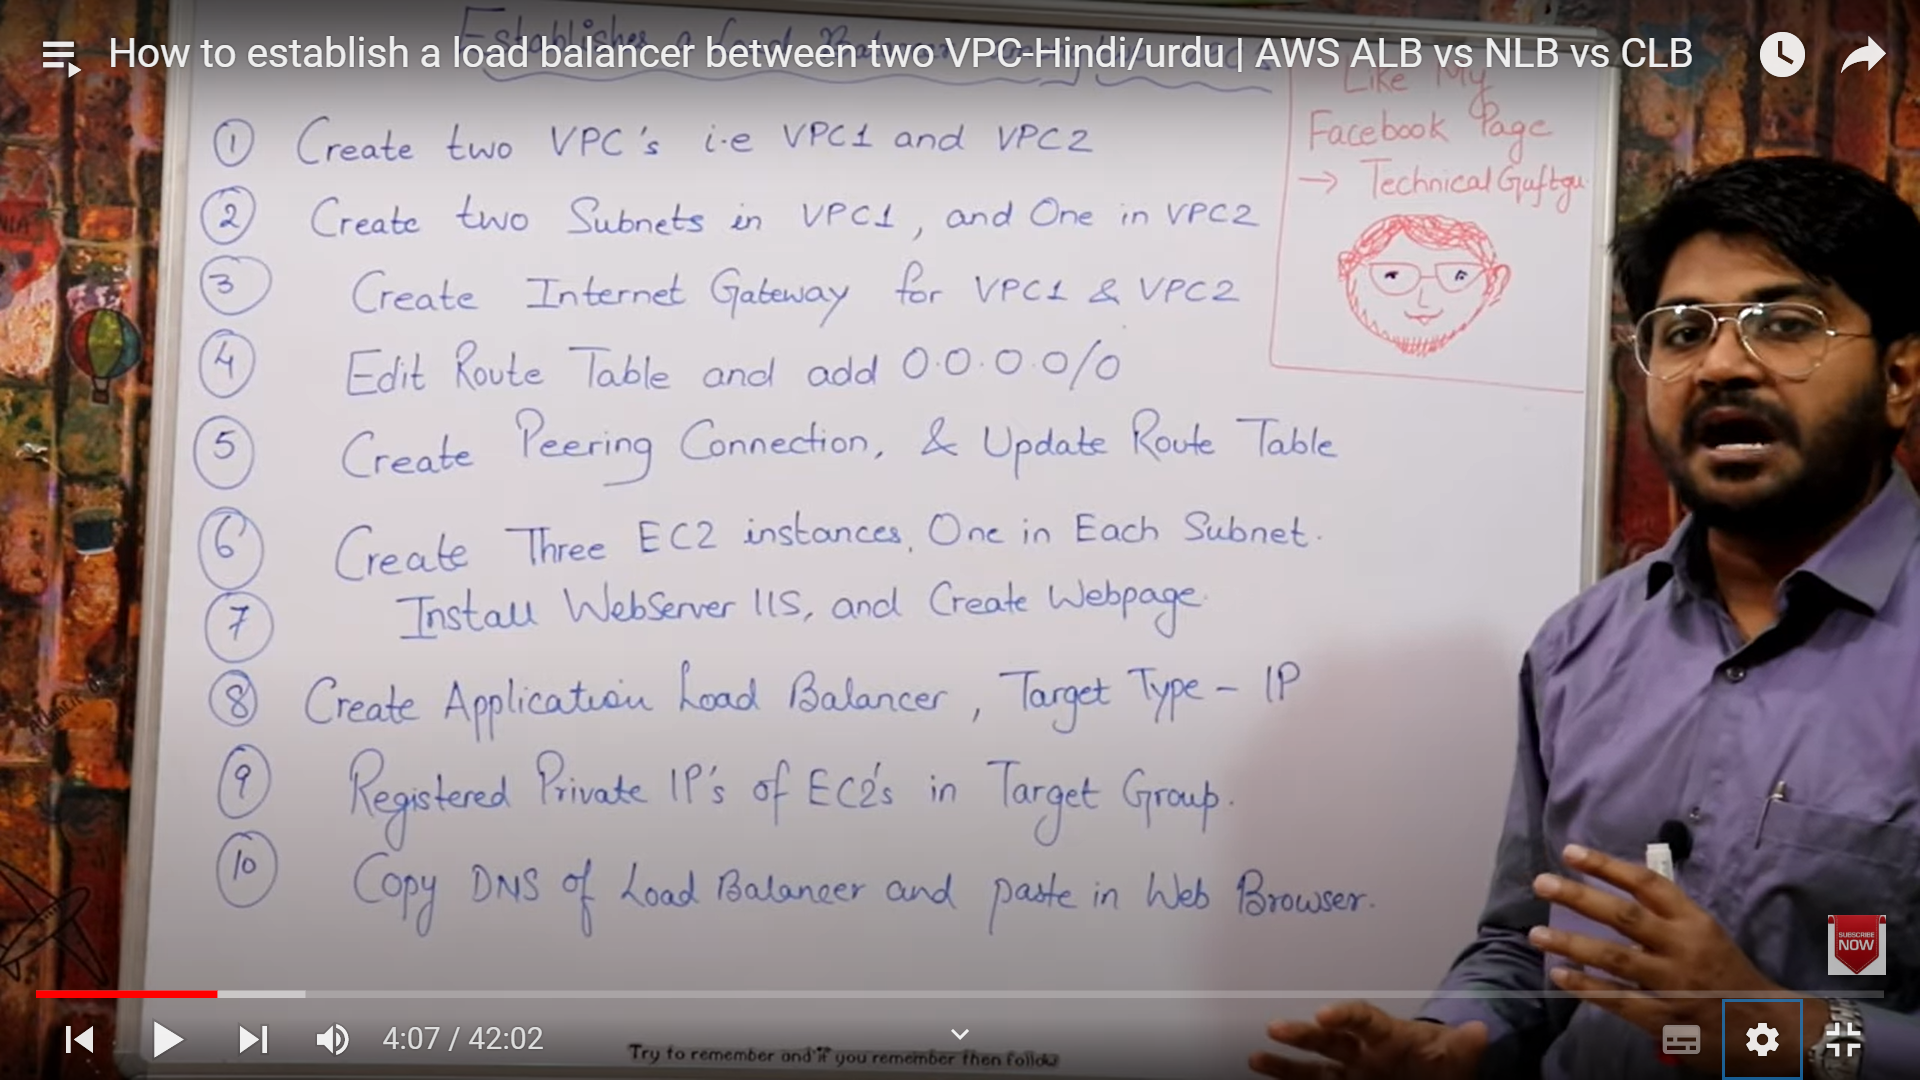 How to establish a load balancer between two VPC-Hindi/urdu | AWS ALB vs NLB vs CLB
Like My
Facebook Page
→ Technical Guftgu
① Create two VPC's i.e VPC1 and VPC2
② Create two Subnets in VPC1, and One in VPC2
③ Create Internet Gateway for VPC1 & VPC2
④ Edit Route Table and add 0.0.0.0/0
⑤ Create Peering Connection, & Update Route Table
⑥ Create Three EC2 instances, One in Each Subnet.
⑦ Install WebServer IIS, and Create Webpage.
⑧ Create Application Load Balancer, Target Type - IP
⑨ Registered Private IP's of EC2's in Target Group.
⑩ Copy DNS of Load Balancer and paste in Web Browser.
SUBSCRIBE
NOW
4:07 / 42:02
Try to remember and if you remember then follow